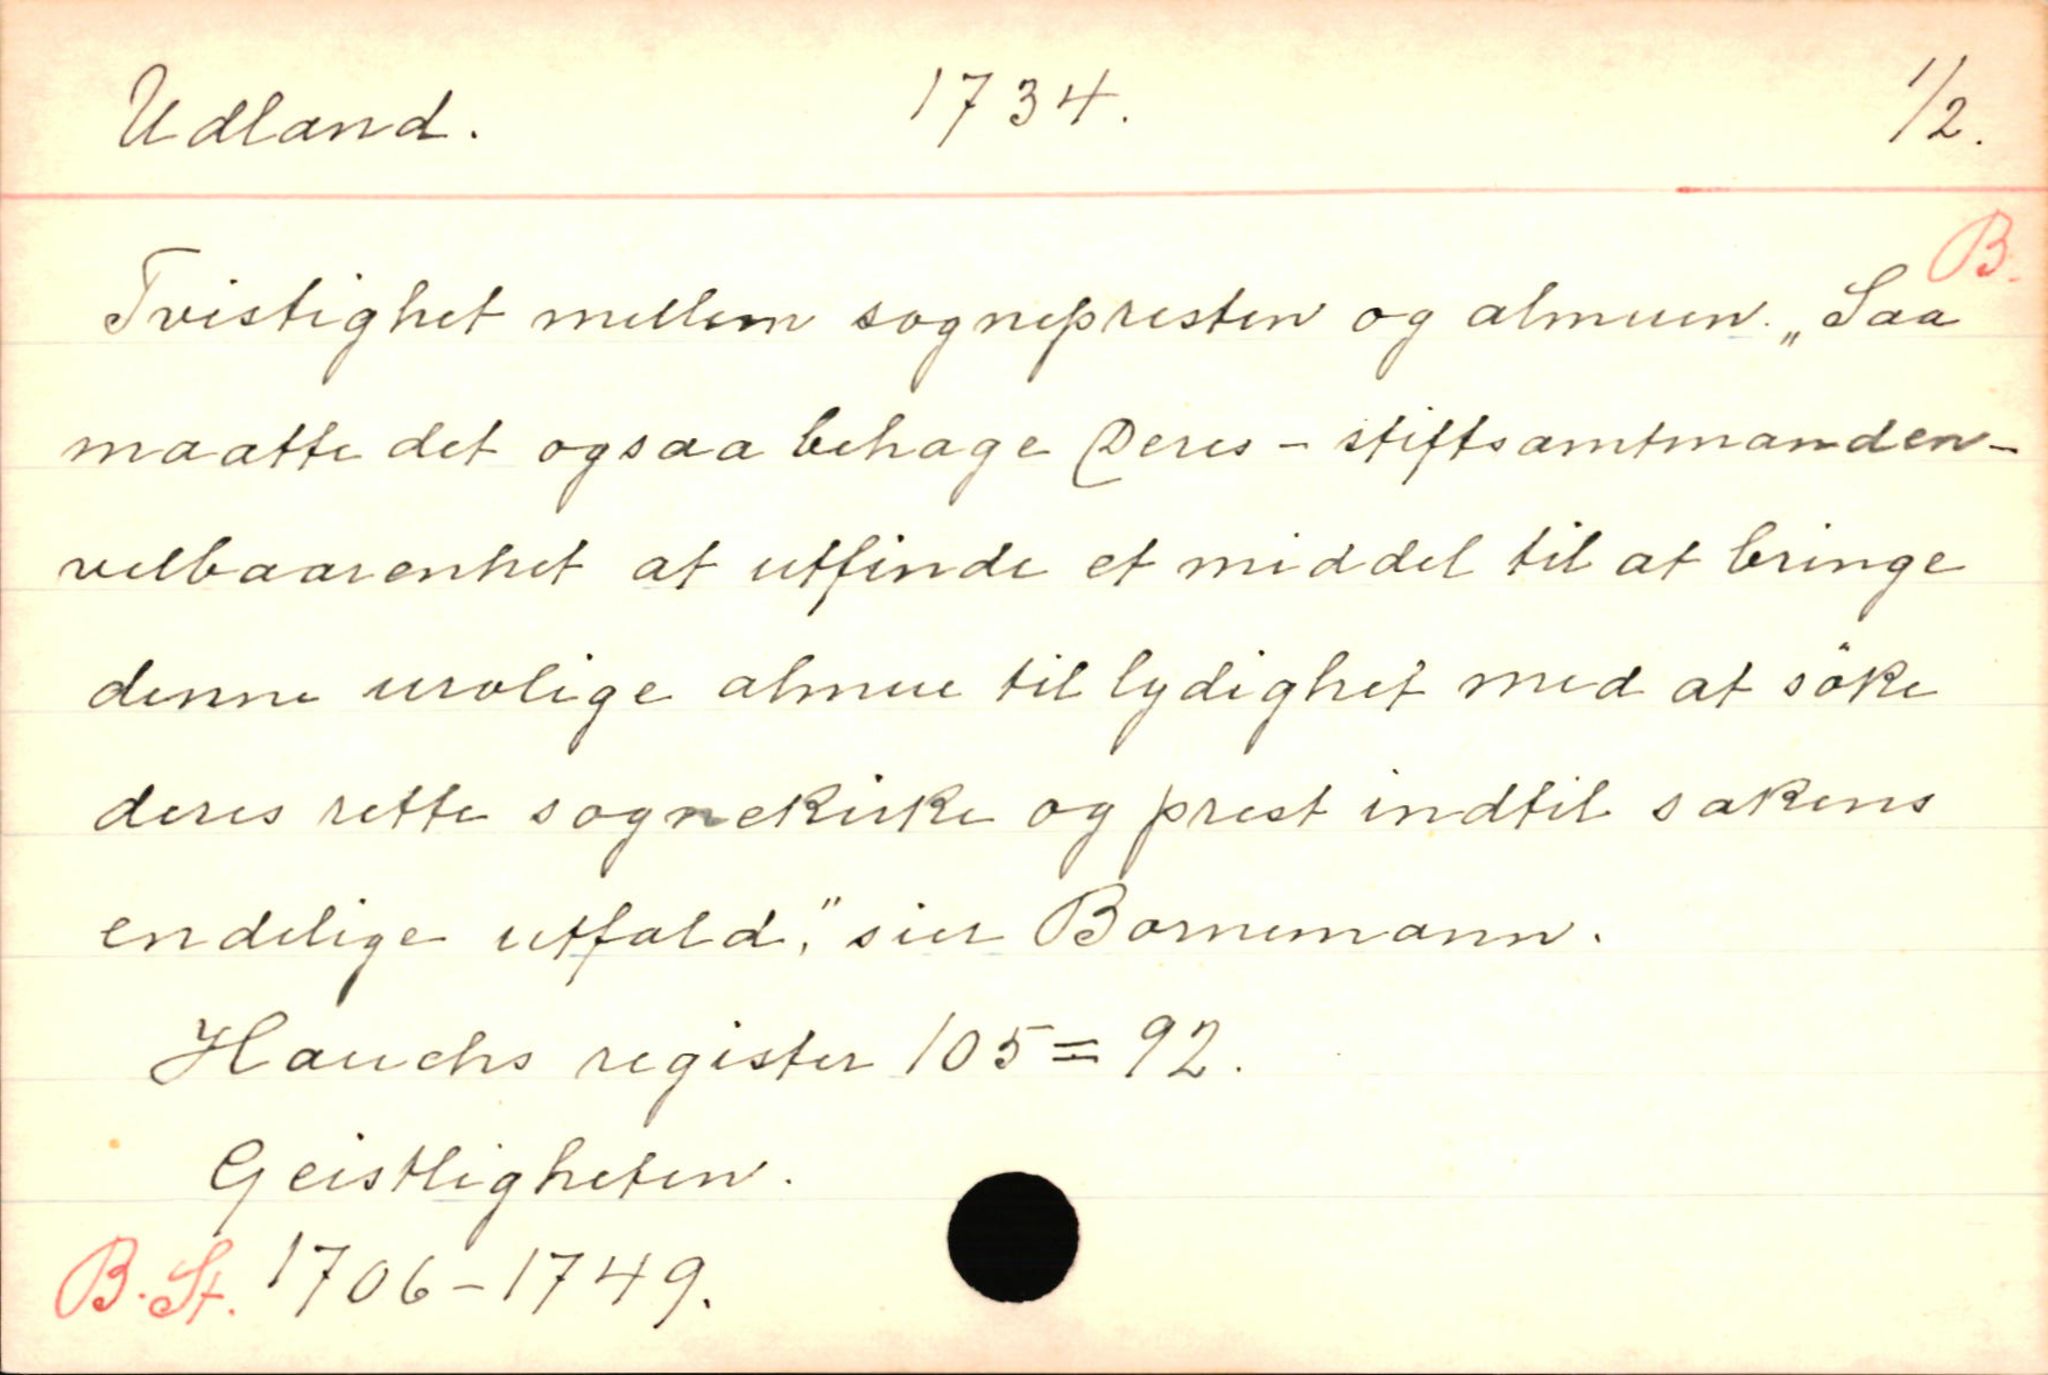 Udland. 1734. 1/2.
B.
Tvistighet mellem sognepresten og almuen. „Saa
maatte det ogsaa behage Deres - stiftsamtmanden -
velbaarenhet at utfinde et middel til at bringe
denne urolige almue til lydighet med at söke
deres rette sognekirke og prest indtil sakens
endelige utfald," sier Bornemann.
Hauchs register 105 = 92.
Geistligheten.
B. St. 1706-1749.